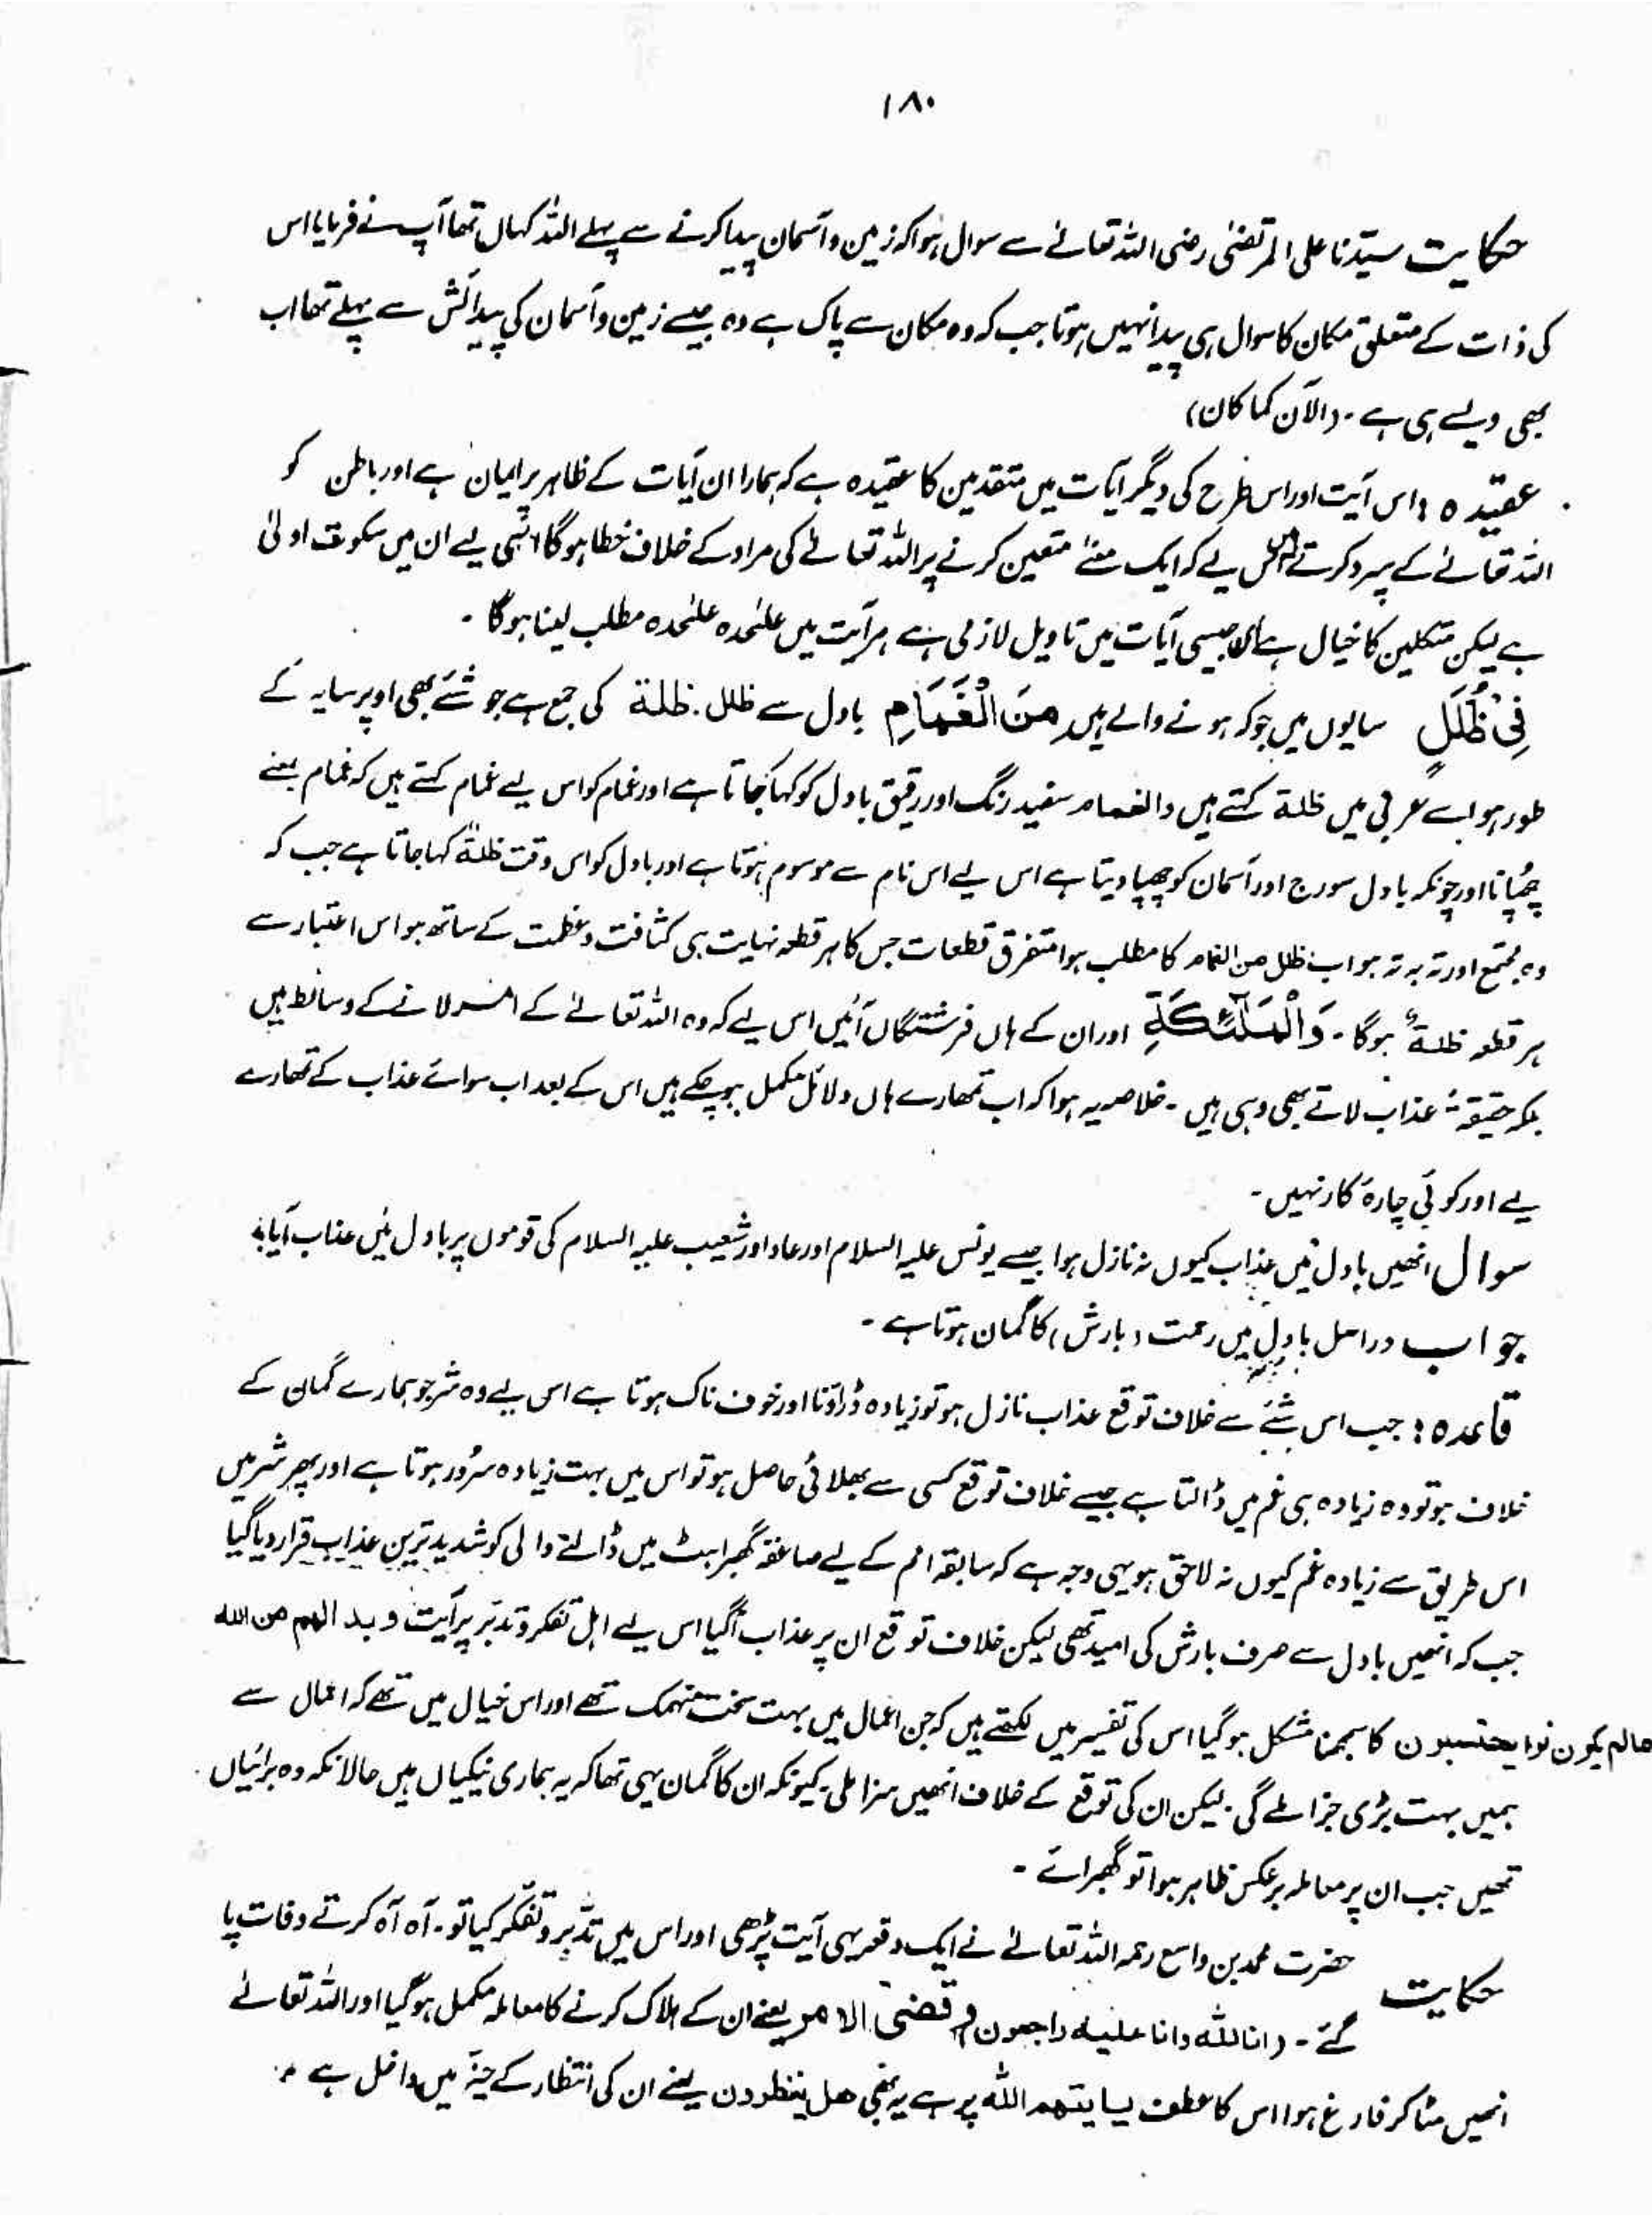 ١٨٠
حکایت سیّدنا علی المرتضیٰ رضی اللہ تعالیٰ سے سوال ہوا کہ زمین و آسمان پیدا کرنے سے پہلے اللہ کہاں تھا آپ نے فرمایا اس
کی ذات کے متعلق مکان کا سوال ہی پیدا نہیں ہوتا جب کہ وہ مکان سے پاک ہے وہ جیسے زمین و آسمان کی پیدائش سے پہلے تھا اب
بھی ویسے ہی ہے ۔ (الآن کما کان)
عقیدہ : اس آیت اور اس طرح کی دیگر آیات میں متقدمین کا عقیدہ ہے کہ ہمارا ان آیات کے ظاہر پر ایمان ہے اور باطن کو
اللہ تعالیٰ کے سپرد کرتے اس لیے کہ ایک معنےٰ متعین کرنے پر اللہ تعالےٰ کی مراد کے خلاف خطا ہوگا اسی لیے ان میں سکوت اولیٰ
ہے لیکن متکلمین کا خیال ہے اس جیسی آیات میں تاویل لازمی ہے ہر آیت میں علیٰحدہ علیٰحدہ مطلب لینا ہوگا ۔
فِیْ ظُلَلٍ سایوں میں جو کہ ہونے والے ہیں مِنَ الْغَمَامِ بادل سے ظلل . ظلة کی جمع ہے جو شئے بھی اوپر سایہ کے
طور ہو اسے عربی میں ظلة کہتے ہیں والغمام سفید رنگ اور رقیق بادل کو کہا جاتا ہے اور غمام کو اس لیے غمام کہتے ہیں کہ غمام بمعنے
چھپانا اور چونکہ بادل سورج اور آسمان کو چھپا دیتا ہے اس لیے اس نام سے موسوم ہوتا ہے اور بادل کو اس وقت ظلۃ کہا جاتا ہے جب کہ
وہ مجتمع اور تہ بہ تہ ہو اب ظلل من الغمام کا مطلب ہوا متفرق قطعات جس کا ہر قطعہ نہایت ہی کثافت و عظمت کے ساتھ ہو اس اعتبار سے
ہر قطعہ ظلۃٌ ہوگا ۔ وَالْمَلٰٓئِكَةِ اور ان کے ہاں فرشتگان آئیں اس لیے کہ وہ اللہ تعالےٰ کے امر لانے کے وسائط ہیں
بلکہ حقیقۃً عذاب لاتے بھی وہی ہیں ۔ خلاصہ یہ ہوا کہ اب تمھارے ہاں دلائل مکمل ہو چکے ہیں اس کے بعد اب سوائے عذاب کے تمھارے
لیے اور کوئی چارۂ کار نہیں ۔
سوال انھیں بادل میں عذاب کیوں نہ نازل ہوا جیسے یونس علیہ السلام اور عاد اور شعیب علیہ السلام کی قوموں پر بادل میں عذاب آیا؟
جواب دراصل بادل میں رحمت (بارش) کا گمان ہوتا ہے ۔
قاعدہ : جب اس شئے سے خلاف توقع عذاب نازل ہو تو زیادہ ڈراؤنا اور خوف ناک ہوتا ہے اس لیے وہ شر جو ہمارے گمان کے
خلاف ہو تو وہ زیادہ ہی غم میں ڈالتا ہے جیسے خلاف توقع کسی سے بھلائی حاصل ہو تو اس میں بہت زیادہ سرُور ہوتا ہے اور پھر شر میں
اس طریق سے زیادہ غم کیوں نہ لاحق ہو یہی وجہ ہے کہ سابقہ امم کے لیے صاعقہ گھبراہٹ میں ڈالنے والی کو شدید ترین عذاب قرار دیا گیا
جب کہ انھیں بادل سے صرف بارش کی امید تھی لیکن خلاف توقع ان پر عذاب آگیا اس لیے اہل تفکر و تدبّر پر آیت وبدالہم من اللہ
مالم یکون نوا یحتسبون کا سمجھنا مشکل ہوگیا اس کی تفسیر میں لکھتے ہیں کہ جن اعمال میں بہت سخت منہمک تھے اور اس خیال میں تھے کہ اعمال سے
ہمیں بہت بڑی جزا ملے گی . لیکن ان کی توقع کے خلاف انھیں سزا ملی . کیونکہ ان کا گمان یہی تھا کہ یہ ہماری نیکیاں ہیں حالانکہ وہ برائیاں
تھیں جب ان پر معاملہ برعکس ظاہر ہوا تو گھبرائے ۔
حکایت حضرت محمد بن واسع رحمہ اللہ تعالےٰ نے ایک دفعہ یہی آیت پڑھی اور اس میں تدبّر و تفکّر کیا تو ۔ آہ آہ کرتے وفات پا
گئے ۔ (انا للہ وانا علیہ راجعون) وقضی الامر یعنے ان کے ہلاک کرنے کا معاملہ مکمل ہوگیا اور اللہ تعالےٰ
انھیں مٹا کر فارغ ہوا اس کا عطف یایتہم اللہ پر ہے یہ بھی ھل ینظرون یعنے ان کی انتظار کے حیّز میں داخل ہے ۔